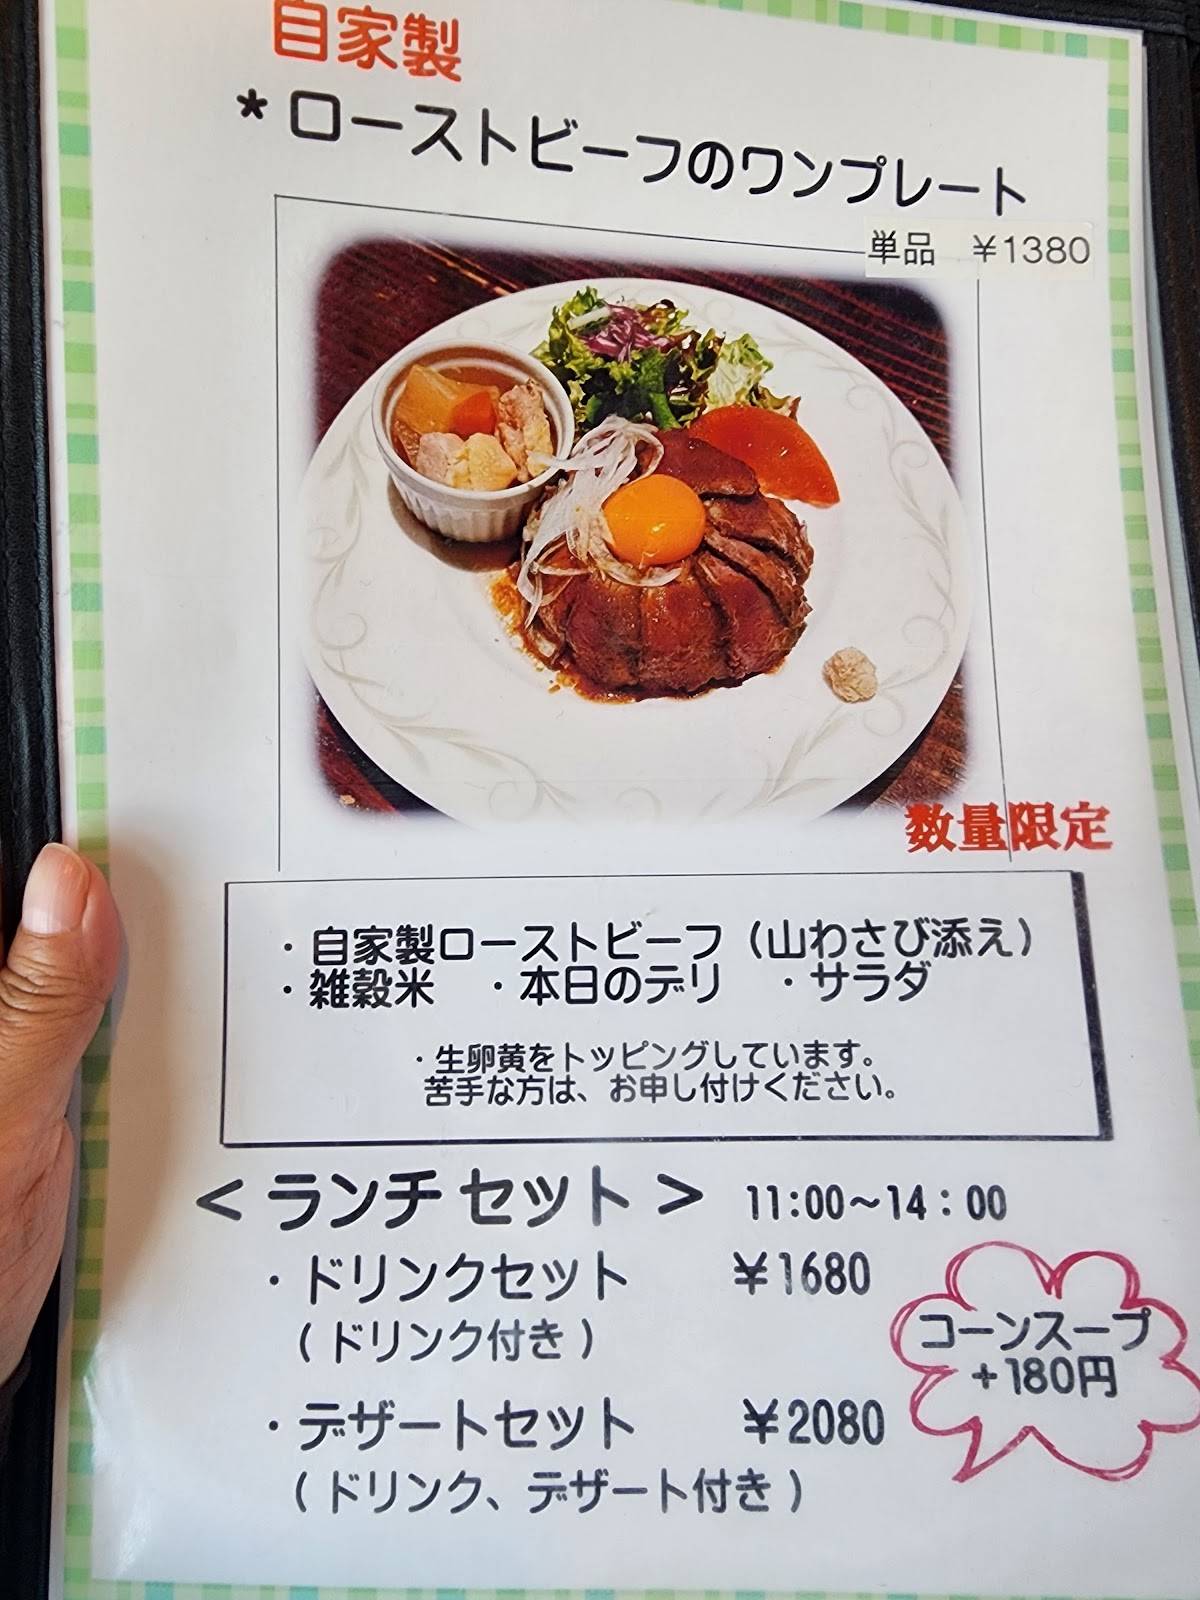 自家製
*ローストビーフのワンプレート
単品　¥1380
数量限定
・自家製ローストビーフ（山わさび添え）
・雑穀米　・本日のデリ　・サラダ
・生卵黄をトッピングしています。
苦手な方は、お申し付けください。
＜ランチセット＞ 11:00～14：00
・ドリンクセット　¥1680
（ドリンク付き）
コーンスープ
＋180円
・デザートセット　¥2080
（ドリンク、デザート付き）